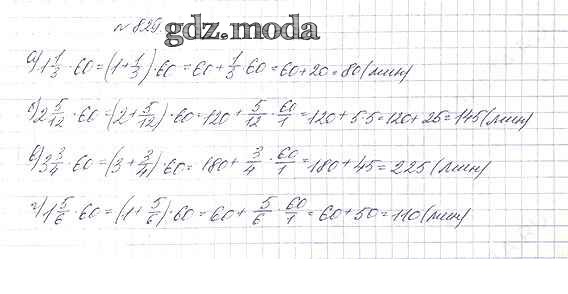 № 829 gdz.moda
а) 1 1/3 · 60 = (1 + 1/3) · 60 = 60 + 1/3 · 60 = 60 + 20 = 80 (мин)
б) 2 5/12 · 60 = (2 + 5/12) · 60 = 120 + 5/12 · 60/1 = 120 + 5·5 = 120 + 26 = 145 (мин)
в) 3 3/4 · 60 = (3 + 3/4) · 60 = 180 + 3/4 · 60/1 = 180 + 45 = 225 (мин)
г) 1 5/6 · 60 = (1 + 5/6) · 60 = 60 + 5/6 · 60/1 = 60 + 50 = 110 (мин)